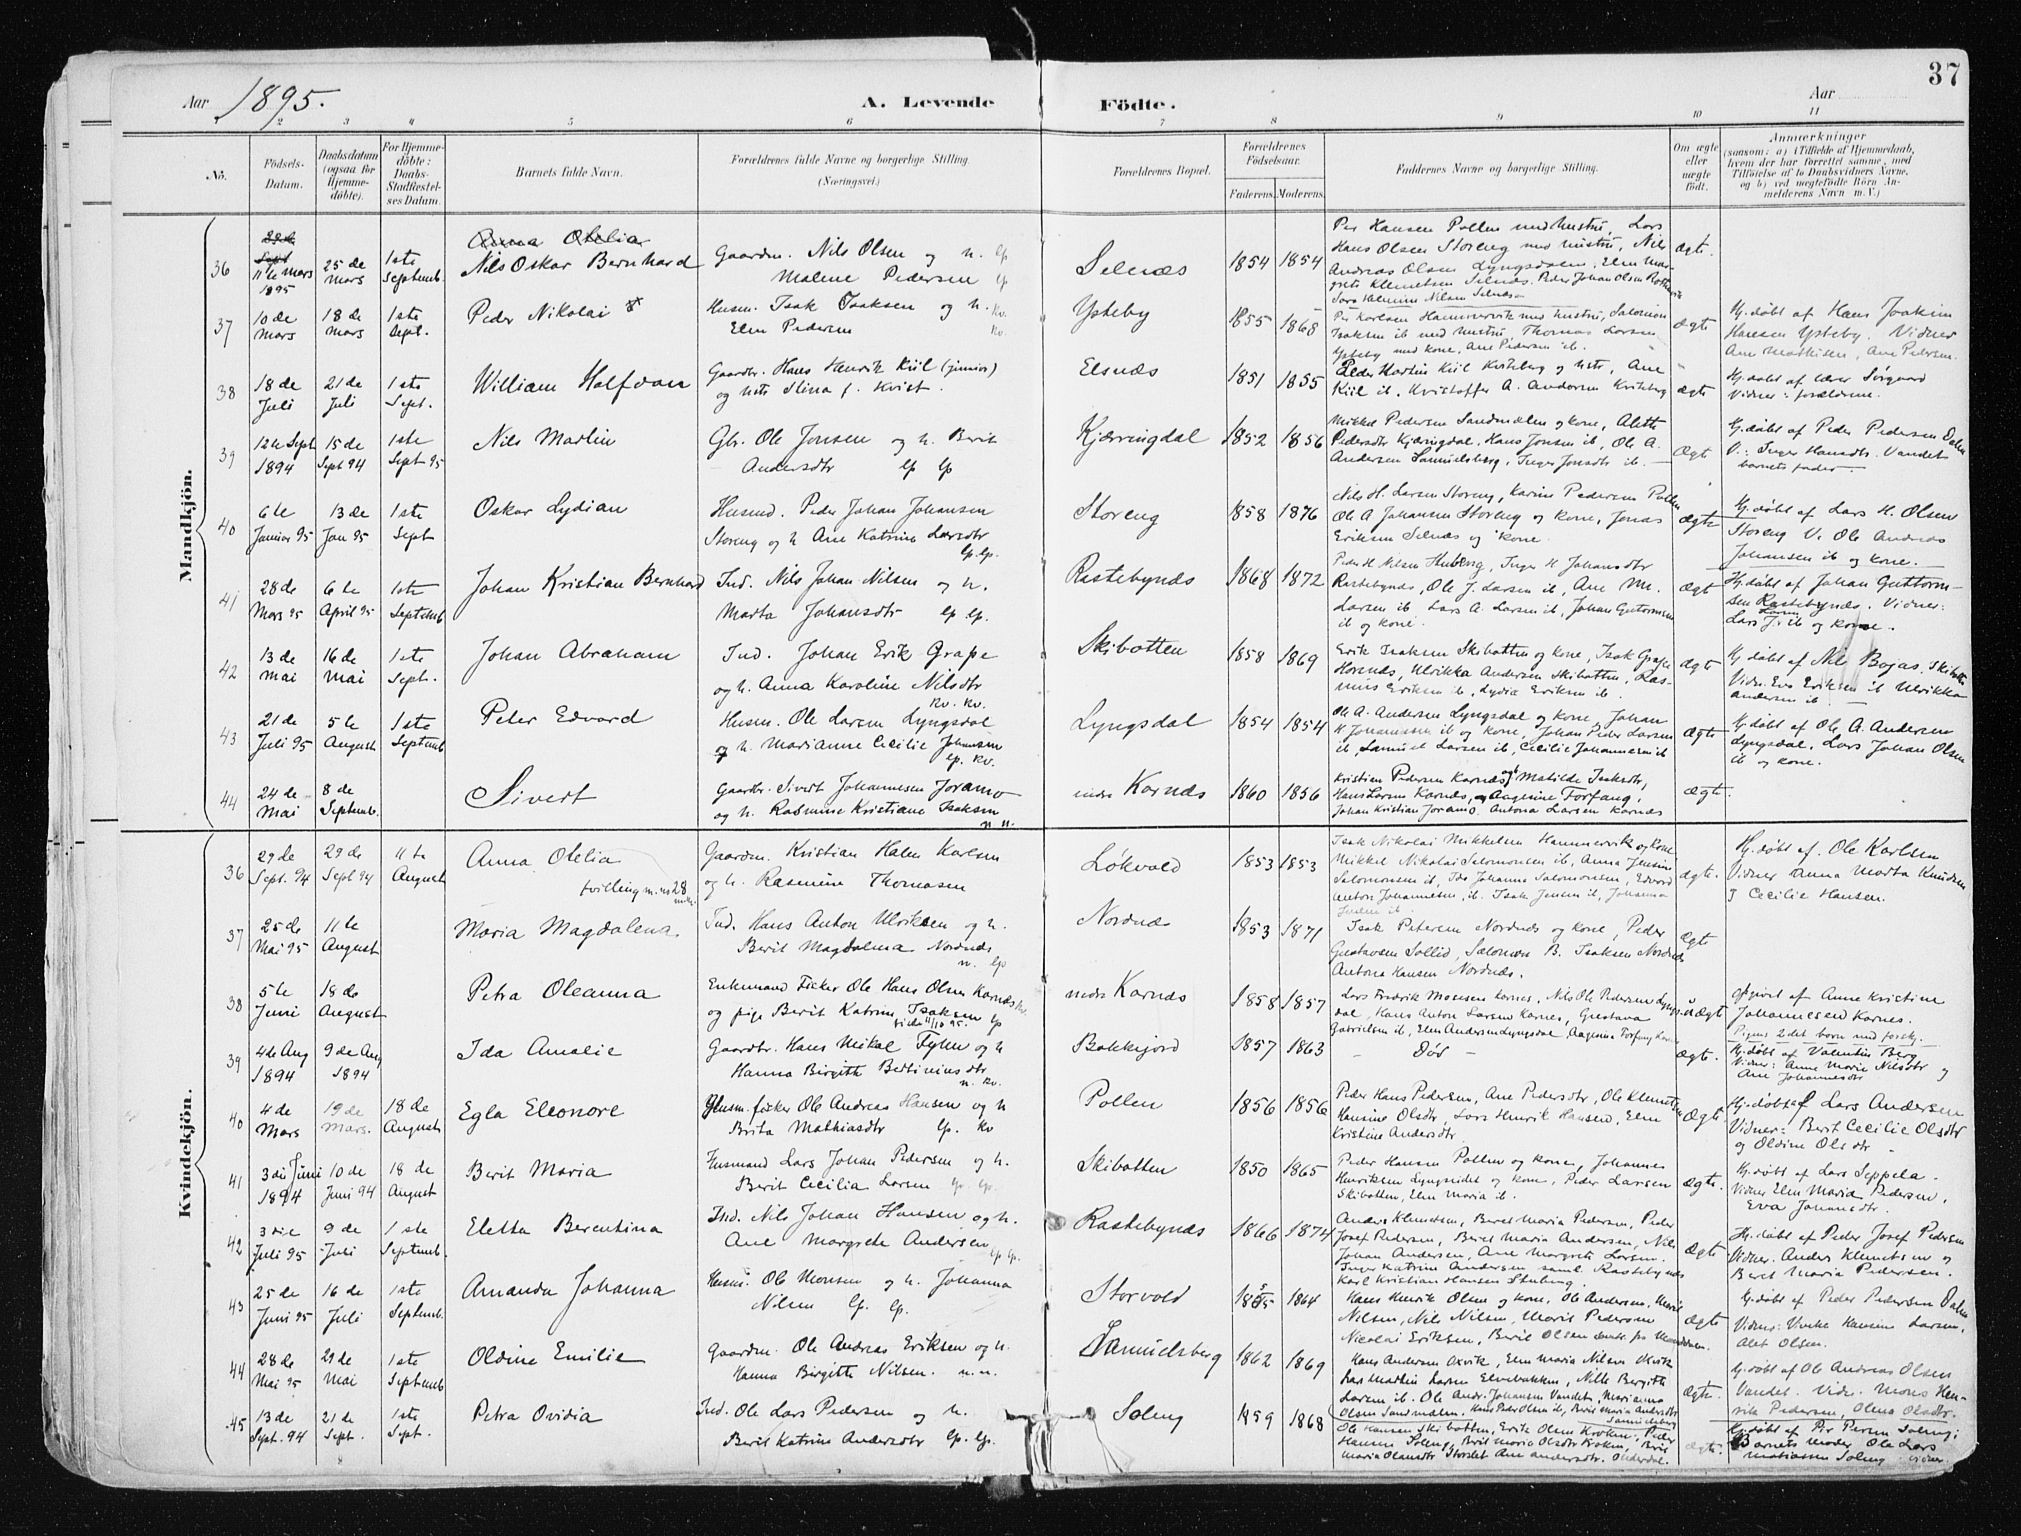 37
Aar 1895. A. Levende Födte. Aar
1 2 3 4 5 6 7 8 9 10 11
No. Födsels-Datum. Daabsdatum (ogsaa for Hjemme-döbte). For Hjemme-döbte: Daabs-Stadfæstel-ses Datum. Barnets fulde Navn. Forældrenes fulde Navne og borgerlige Stilling. (Næringsvei.) Forældrenes Bopæl. Forældrenes Födselsaar. Faderens. Moderens. Faddernes Navne og borgerlige Stilling. Om ægte eller uægte födt. Anmærkninger (saasom: a) i Tilfælde af Hjemmedaab, hvem der har forrettet samme, med Tilföielse af to Daabsvidners Navne, og b) ved uægtefödte Börn An-melderens Navn m. V.)
Mandkjön.
Anna Otelia
36 11te Mars 1895 25 de Mars 1ste Septemb. Nils Oskar Bernhard Gaardm. Nils Olsen og h. lp Malene Pedersen lp Selnæs 1854 1854 Per Hansen Pollen med hustru, Lars
Hans Olsen Storeng med hustru, Nils
Andreas Olsen Lyngsdalen, Elen Mar-
grete Klemetsen Selnæs. Peder Johan Olsen
ægt.
37 10 de Mars 18 de Mars 1ste Sept. Peder Nikolai Husm. Isak Isaksen og h. kv. Elen Pedersen kv. Ysteby 1855 1868 Per Karlsen Hammervik med hustru, Salomon
Isaksen ib med hustru, Thomas Larsen
Ysteby med kone, Ane Pedersen ib.
ægt Hj. døbt af Hans Joakim
Hansen Ysteby. Vidner
Ane Mathisen, Ane Pedersen.
38 18 de Juli 21 de Juli 1ste Sept. William Halfdan Gaardbr. Hans Henrik Kiil (junior) og hts Stina f. Kvist. Elsnæs 1851 1855 Peder Martin Kiil Kvitberg og hts, Ane
Kiil ib, Kristoffer A. Andersen Kvitberg
ægt Hj. døbt af lærer Sørgaard
Vidner: forældrene.
39 12te Sept 1894 15 de Sept 94 1ste Sept 95 Nils Martin Gbr. Ole Jonsen og h. Berit Andersdtr lp lp Kjærringdal 1852 1856 Mikkel Pedersen Sandmælen og kone, Alett
Pedersdtr Kjæringdal, Hans Jonsen ib, Ole A.
Andersen Samuelsberg, Inger Jonsdtr ib.
Ægt Hj. døbt af Peder Pedersen Dalen
V.: Inger Hansdtr. Vandet
barnets fader.
40 6 te Januar 95 13 de Jan 95 1ste Sept Oskar Lydian Husmd. Peder Johan Johansen Storeng og h Ane Katrine Larsdtr lp. lp. Storeng 1858 1876 Nils H. Larsen Storeng, Karine Pedersen Pollen
Ole A Johansen Storeng og kone, Jonas
Eriksen Selnæs og kone.
ægte Hj. døbt af Lars H. Olsen
Storeng V. Ole Andreas
Johansen ib og kone.
41 28 de Mars 95 6 te April 95 1ste Septemb Johan Kristian Bernhard Ind. Nils Johan Nilsen og h. Marta Johansdtr lp lp. Rastebynæs 1868 1872 Inger H Johansdtr
Rastebynæs, Ole J. Larsen ib, Ane M.
Larsen ib Lars A. Larsen ib, Johan Guttormsen
ib og kone.
ægt Hj. døbt af Johan Guttorm-
sen Rastebynæs. Vidner:
Lars J. Larsen ib og kone.
42 13 de Mai 16 de Mai 1ste Sept. Johan Abraham Ind. Johan Erik Grape og h. Anna Karoline Nilsdtr kv. kv. Skibotten 1858 1869 Erik Isaksen Skibotten og kone, Isak Grape
Horsnæs, Ulrikka Andersen Skibotten, Ras-
mus Eriksen ib, Lydia Eriksen ib.
ægt Hj. døbt af Nils Bojas, Skibotten
Vidn. Eva Eriksen ib Ulrikka
Andersen ib
43 21 de Juli 95 5 te August 1ste Septemb Peter Edvard Husm. Ole Larsen Lyngsdal og h. Marianne Cecilie Johansen lp. kv. Lyngsdal 1854 1854 Ole A. Andersen Lyngsdal og kone, Johan
H Johannesen ib og kone, Johan Peder Larsen
ib, Samuel Larsen ib, Cecilie Johannesen ib
ægte Hj. døbt af Ole A. Andersen
Lyngsdal, Lars Johan Olsen
ib og kone.
44 24 de Mai 8 de Septemb. Sivert Gaardbr. Sivert Johannesen Joramo og h. Rasmine Kristiane Isaksen n n. nedre Karnæs 1860 1856 Kristian Pedersen Karnæs og Matilde Isaksdtr,
Hans Larsen Karnæs, Aagenine Forfang,
Johan Kristian Joramo. Antona Larsen Karnæs
ægt.
Kvindekjön.
36 29 de Sept. 94 29 de Sept 94 11 te August Anna Otelia tvilling m. no 28 Gaardm. Kristian Halm Karlsen og h. Rasmine Thomasen Løkvold 1853 1853 Isak Nikolai Mikkelsen Hammervik og kone
Mikkel Nikolai Salomonsen ib, Anna Jensine
Salomonsen ib, Ida Johanne Salomonsen, Edvard
Anton Johannesen, ib. Isak Jensen ib, Johanna
ægte. Hj. døbt af. Ole Karlsen
Vidner Anna Marta Knudsen
J Cecilie Hansen.
37 25 de Mai 95 11 te August Maria Magdalena Ind. Hans Anton Ulriksen og h. Berit Magdalena Nordnæs n. lp Nordnæs 1853 1871 Isak Petersen Nordnæs og kone, Peder
Gustavsen Sollid, Salomon B. Isaksen Nordnæs
Antona Hansen Nordnæs.
Ægt
38 5 te Juni 18 de August Petra Oleanna Enkemand Fisker Ole Hans Olsen Karnæs og pige Berit Katrine Isaksen lp nedre Karnæs 1858 1857 Lars Fredrik Monsen Karnes, Nils Ole Pedersen Lyngs-
dal, Hans Anton Larsen Karnes, Gustava
Gabrielsen ib, Elen Andersen Lyngsdal, Aagenine Forfang Karnes
uægt opgivet af Anne Kristine
Johannesen Karnes.
Pigens 2det barn med forskj.
39 4 de Aug 1894 9 de Aug 1894 Ida Amalie Gaardbr. Hans Mikal Fyhn og h Hanna Birgitte Bertiniusdtr n. kv. Bakkejord 1857 1863 – Død – ægt. Hj. døbt af Valentin Berg
Vidner: Anne Marie Nilsdtr og
Ane Johannesdtr
40 4 de Mars 19 de Mars. 18 de August Egla Eleonore Husm. fisker Ole Andreas Hansen og h Brita Mathiasdtr lp. kv Pollen 1856 1856 Peder Hans Pedersen, Ane Pedersdtr, Ole Klemetsen
Hansine Olsdtr, Lars Henrik Hansen, Elen
Kristine Andersdtr.
Ægt Hj. døbt af Lars Andersen
Vidner: Berit Cecilie Olsdtr
og Oldine Olsdtr
41 3 die Juni 1894 10 de Juni 94 18 de August Berit Maria Husmand Lars Johan Pedersen og h. Berit Cecilia Larsen lp. lp. Skibotten 1850 1865 Peder Hansen Pollen og kone, Johannes
Henriksen Lyngseidet og kone, Peder Larsen
Skibotten, Elen Maria ib.
ægte. Hj. døbt af Lars Seppela.
Vidner Elen Maria Pedersen,
Eva Johansdtr.
42 3 die Juli 95 9 de Juli 1 ste Septemb. Eletta Berentina Ind. Nils Johan Hansen og h. Ane Margrete Andersen lp lp. Rastebynæs 1866 1874 Anders Klemetsen, Beret Maria Pedersen, Peder
Josef Pedersen, Beret Maria Andersen, Nils
Johan Andersen, Ane Margrete Larsen.
Inger Katrine Andersen saml. Rastebynæs
Karl Kristian Hansen
ægt Hj. døbt af Peder Josef Pedersen
Vidner. Anders Klemetsen og
Beret Maria Pedersen.
43 25 de Juni 95 16 de Juli 1ste Septemb. Amanda Johanna Husm. Ole Monsen og h. Johanna Nilsen lp. lp. Storvold 1855 1864 Hans Henrik Olsen og kone, Ole Andersen, Marit
Nilsen, Nils Nilsen, Marit Pedersen
Nicolai Eriksen, Berit Olsen
ægte Hj. døbt af Peder Pedersen Dalen
Vidner: Vivike Hansine Larsen,
Alet Olsen.
44 28 de Mai 95 29 de Mai 1ste Septemb Oldine Emilie Gaardm. Ole Andreas Eriksen og h. Hanna Birgitte Nilsen. n. n. Samuelsberg 1862 1869 Hans Andersen Oxvik, Elen Maria Nilsen Oxvik
Lars Martin Larsen Elvebakken, Nille Bergitte
Larsen ib. Ole Andr. Johansen Vandet, Marianna
Olsen Sandmælen. Hans Peder Olsen ib, Berit Maria Andersdtr
Samuelsberg
ægte. Hj. døbt af Ole Andreas Olsen
Vandet. Vidr. Mons Hen-
rik Pedersen, Olena Olsdtr.
45 13 de Sept. 94 21 de Sept. 1ste Sept. Petra Ovidia Ind. Ole Lars Pedersen og h. Berit Katrine Andersdtr lp. lp. Soleng 1859 1868 Ole Hansen Skibotten, Erik Olsen Kroken, Peder
Hansen Soleng, Berit Maria Olsdtr Kroken, Berit
Maria Olausdtr Storslet Ane Andersdtr. Olderdal.
ægte. Hj. døbt af Per Persen Soleng;
Barnets moder Ole Lars
Mathiassen Soleng vidner.